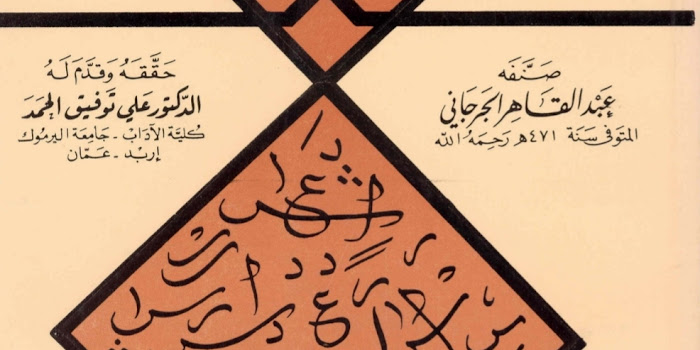 صَنَّفَه
عَبْد القَاهِر الجُرجَاني
المتوفى سَنَة ٤٧١ هـ رَحِمَهُ الله
حَقَّقَهُ وَقَدَّمَ لَهُ
الدكتور عَلي تَوفيق الحَمَد
كُليَّة الآدَابُ - جَامِعَة اليَرموُك
إربد - عَمَّان